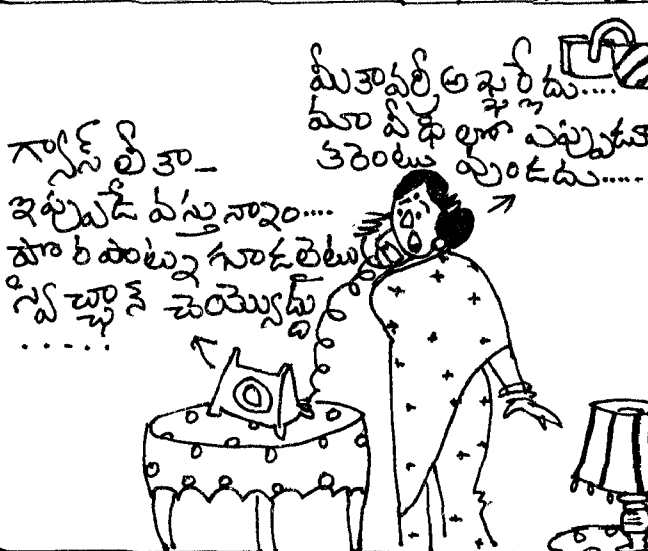 గ్యాస్ లీకా—
ఇప్పుడే వస్తున్నాం....
పొరపాటున కూడ లైటు
స్విచ్చాన్ చెయ్యొద్దు
.....
మీకావర్రీ అఖ్ఖర్లేదు....
మా వీధిలో ఎప్పుడూ
కరెంటు వుండదు.....